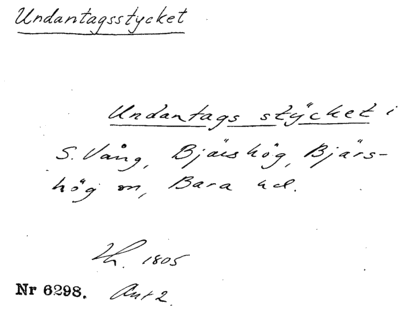 Undantagsstycket
Undantags stÿcket i
S. Vång, Bjärshög, Bjärs-
hög sn, Bara hd.
1805
Nr 6298.